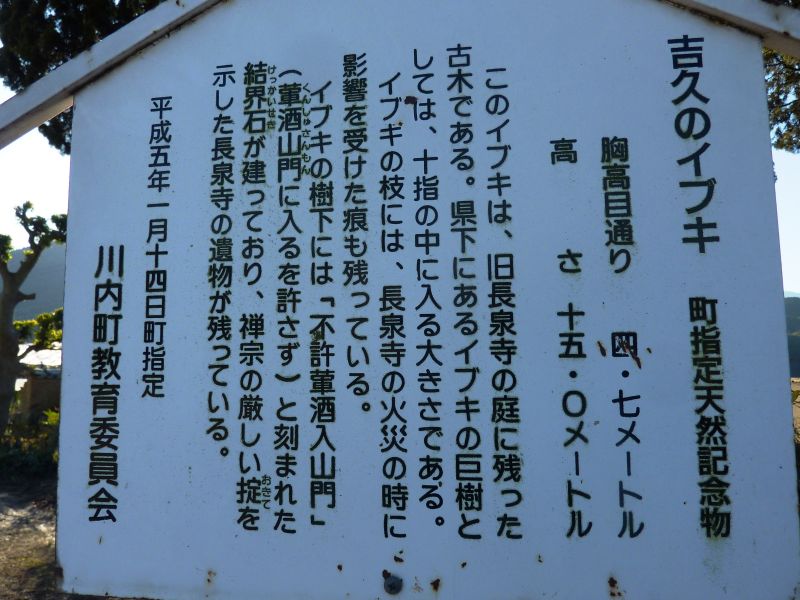 吉久のイブキ　町指定天然記念物
胸高目通り　四・七メートル
高さ　十五・〇メートル
このイブキは、旧長泉寺の庭に残った
古木である。県下にあるイブキの巨樹と
しては、十指の中に入る大きさである。
イブキの枝には、長泉寺の火災の時に
影響を受けた痕も残っている。
イブキの樹下には「不許葷酒入山門」
くんしゅさんもん
（葷酒山門に入るを許さず）と刻まれた
けっかいせき
結界石が建っており、禅宗の厳しい掟を
おきて
示した長泉寺の遺物が残っている。
平成五年一月十四日町指定
川内町教育委員会